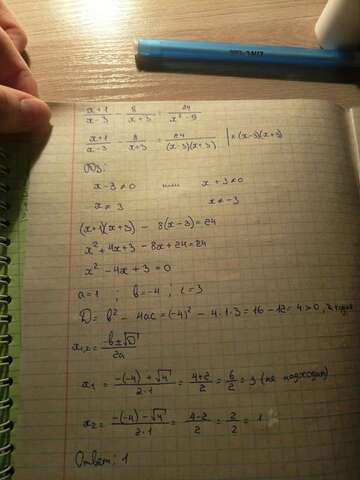 (x+1)/(x-3) - 8/(x+3) = 24/(x²-9)
(x+1)/(x-3) - 8/(x+3) = 24/((x-3)(x+3)) | × (x-3)(x+3)
ОДЗ:
x-3≠0 или x+3≠0
x≠3 x≠-3
(x+1)(x+3) - 8(x-3)=24
x²+4x+3-8x+24=24
x²-4x+3=0
a=1 ; b=-4 ; c=3
D= b²-4ac=(-4)²-4·1·3=16-12=4>0, 2 корня
x₁,₂=(-b±√D)/2a
x₁ = (-(-4)+√4)/(2·1) = (4+2)/2 = 6/2 = 3 (не подходит)
x₂ = (-(-4)-√4)/(2·1) = (4-2)/2 = 2/2 = 1
Ответ: 1